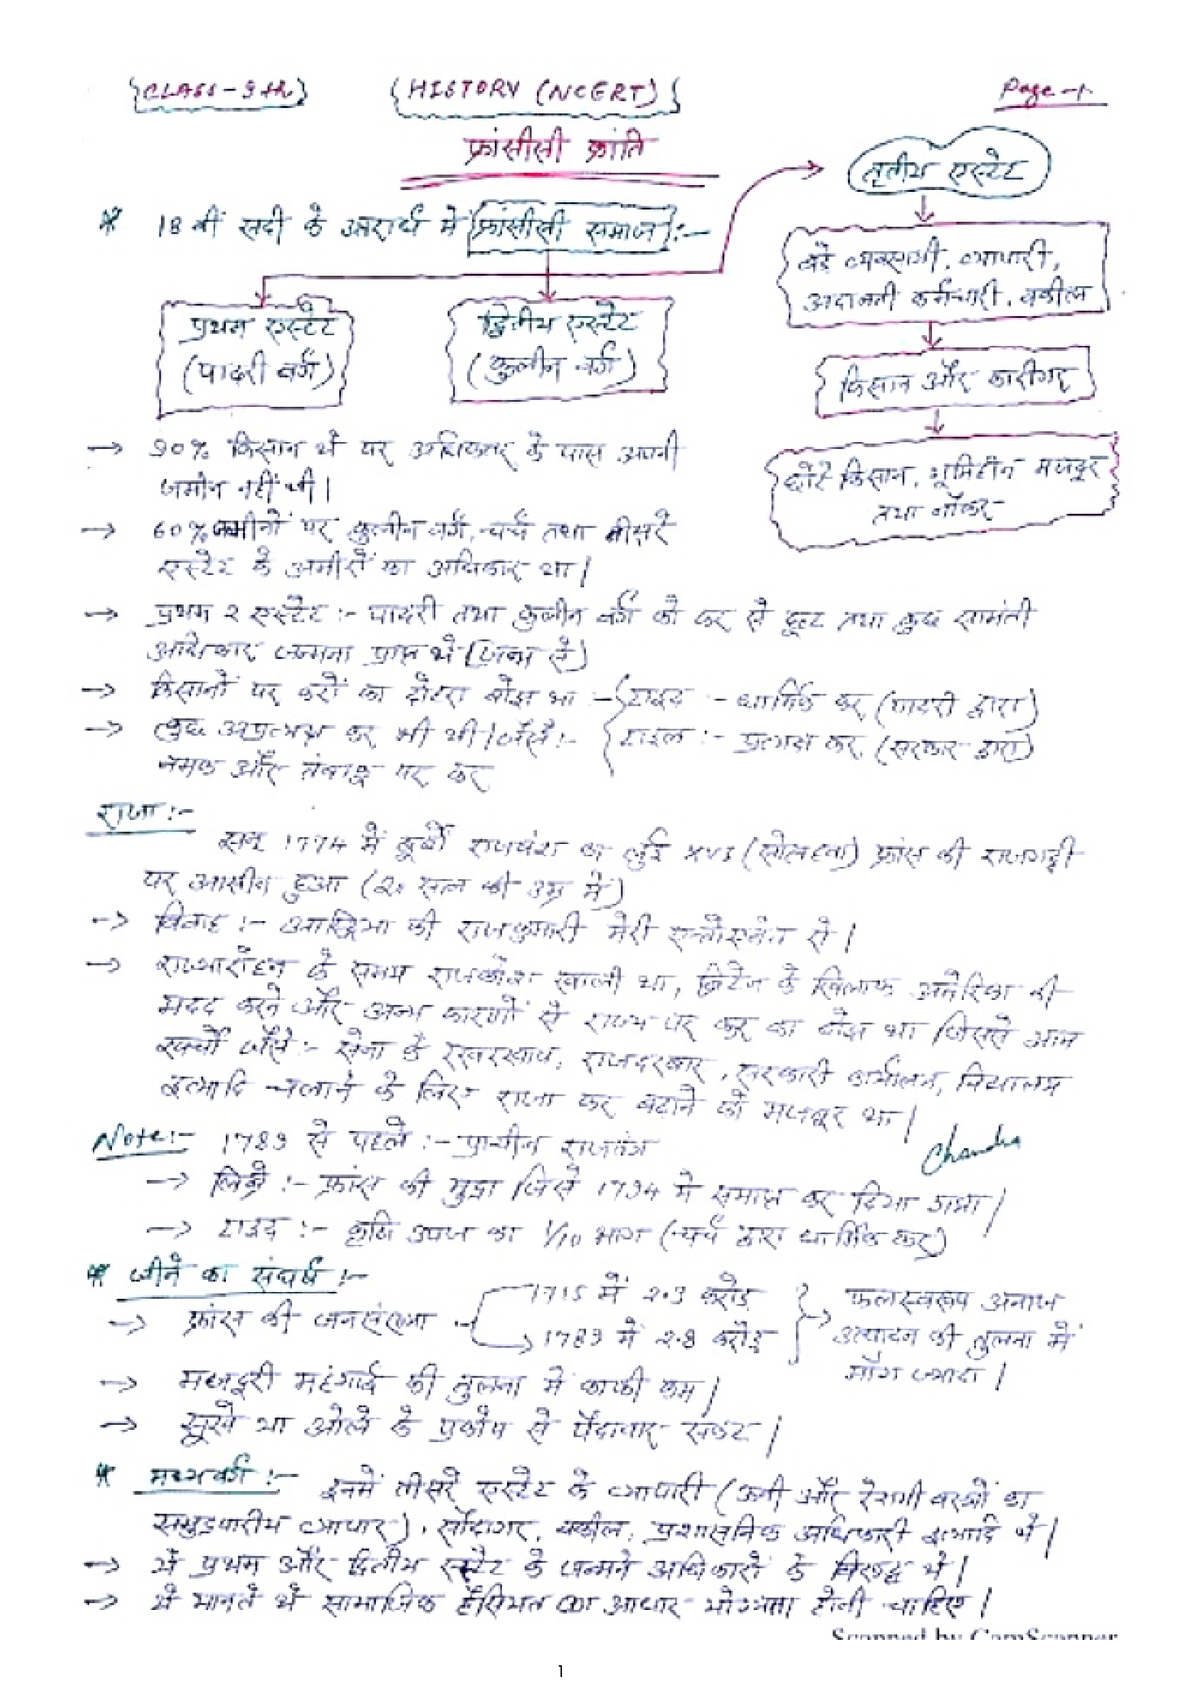 {CLASS-9th}
{HISTORY (NCERT)}
Page-1.
फ्रांसीसी क्रांति
* 18 वीं सदी के उत्तरार्ध में फ्रांसीसी समाज :-
प्रथम एस्टेट
(पादरी वर्ग)
द्वितीय एस्टेट
(कुलीन वर्ग)
तृतीय एस्टेट
बड़े व्यवसायी, व्यापारी,
अदालती कर्मचारी, वकील
किसान और कारीगर
छोटे किसान, भूमिहीन मजदूर
तथा नौकर
→ 90% किसान थे पर अधिकतर के पास अपनी
जमीन नहीं थी।
→ 60% जमीनों पर कुलीन वर्ग, चर्च तथा तीसरे
एस्टेट के अमीरों का अधिकार था।
→ प्रथम 2 एस्टेट :- पादरी तथा कुलीन वर्ग को कर से छूट तथा कुछ सामंती
अधिकार जन्मना प्राप्त थे (जन्म से)
→ किसानों पर करों का दोहरा बोझ था :- टाइद :- धार्मिक कर (पादरी द्वारा)
टाइल :- प्रत्यक्ष कर (सरकार द्वारा)
→ कुछ अप्रत्यक्ष कर भी थी। जैसे :-
नमक और तंबाकू पर कर
राजा :-
सन् 1774 में बूर्बो राजवंश का लुई XVI (सोलहवां) फ्रांस की राजगद्दी
पर आसीन हुआ (20 साल की उम्र में)
→ विवाह :- आस्ट्रिया की राजकुमारी मेरी एन्तोएनेत से।
→ राज्यारोहन के समय राजकोश खाली था, ब्रिटेन के खिलाफ अमेरिका की
मदद करने और अन्य कारणों से राज्य पर कर का बोझ था जिससे आम
खर्चों जैसे :- सेना के रखरखाव, राजदरबार, सरकारी कार्यालय, विद्यालय
इत्यादि चलाने के लिए राजा कर बढ़ाने को मजबूर था।
Note:- 1789 से पहले :- प्राचीन राजतंत्र
Chandra
→ लिव्रे :- फ्रांस की मुद्रा जिसे 1794 में समाप्त कर दिया गया।
→ टाइद :- कृषि उपज का 1/10 भाग (चर्च द्वारा धार्मिक कर)
* जीने का संघर्ष :-
→ फ्रांस की जनसंख्या
1715 में 2.3 करोड़
1789 में 2.8 करोड़
फलस्वरूप अनाज
उत्पादन की तुलना में
माँग ज्यादा।
→ मजदूरी महंगाई की तुलना में काफी कम।
→ सूखे या ओले के प्रकोप से पैदावार संकट।
* मध्यवर्ग :- इनमें तीसरे एस्टेट के व्यापारी (ऊनी और रेशमी वस्त्रों का
समुद्रपारीय व्यापार), सौदागर, वकील, प्रशासनिक अधिकारी इत्यादि थे।
→ ये प्रथम और द्वितीय एस्टेट के जन्मने अधिकारों के विरुद्ध थे।
→ ये मानते थे सामाजिक हैसियत का आधार योग्यता होनी चाहिए।
Scanned by CamScanner
1